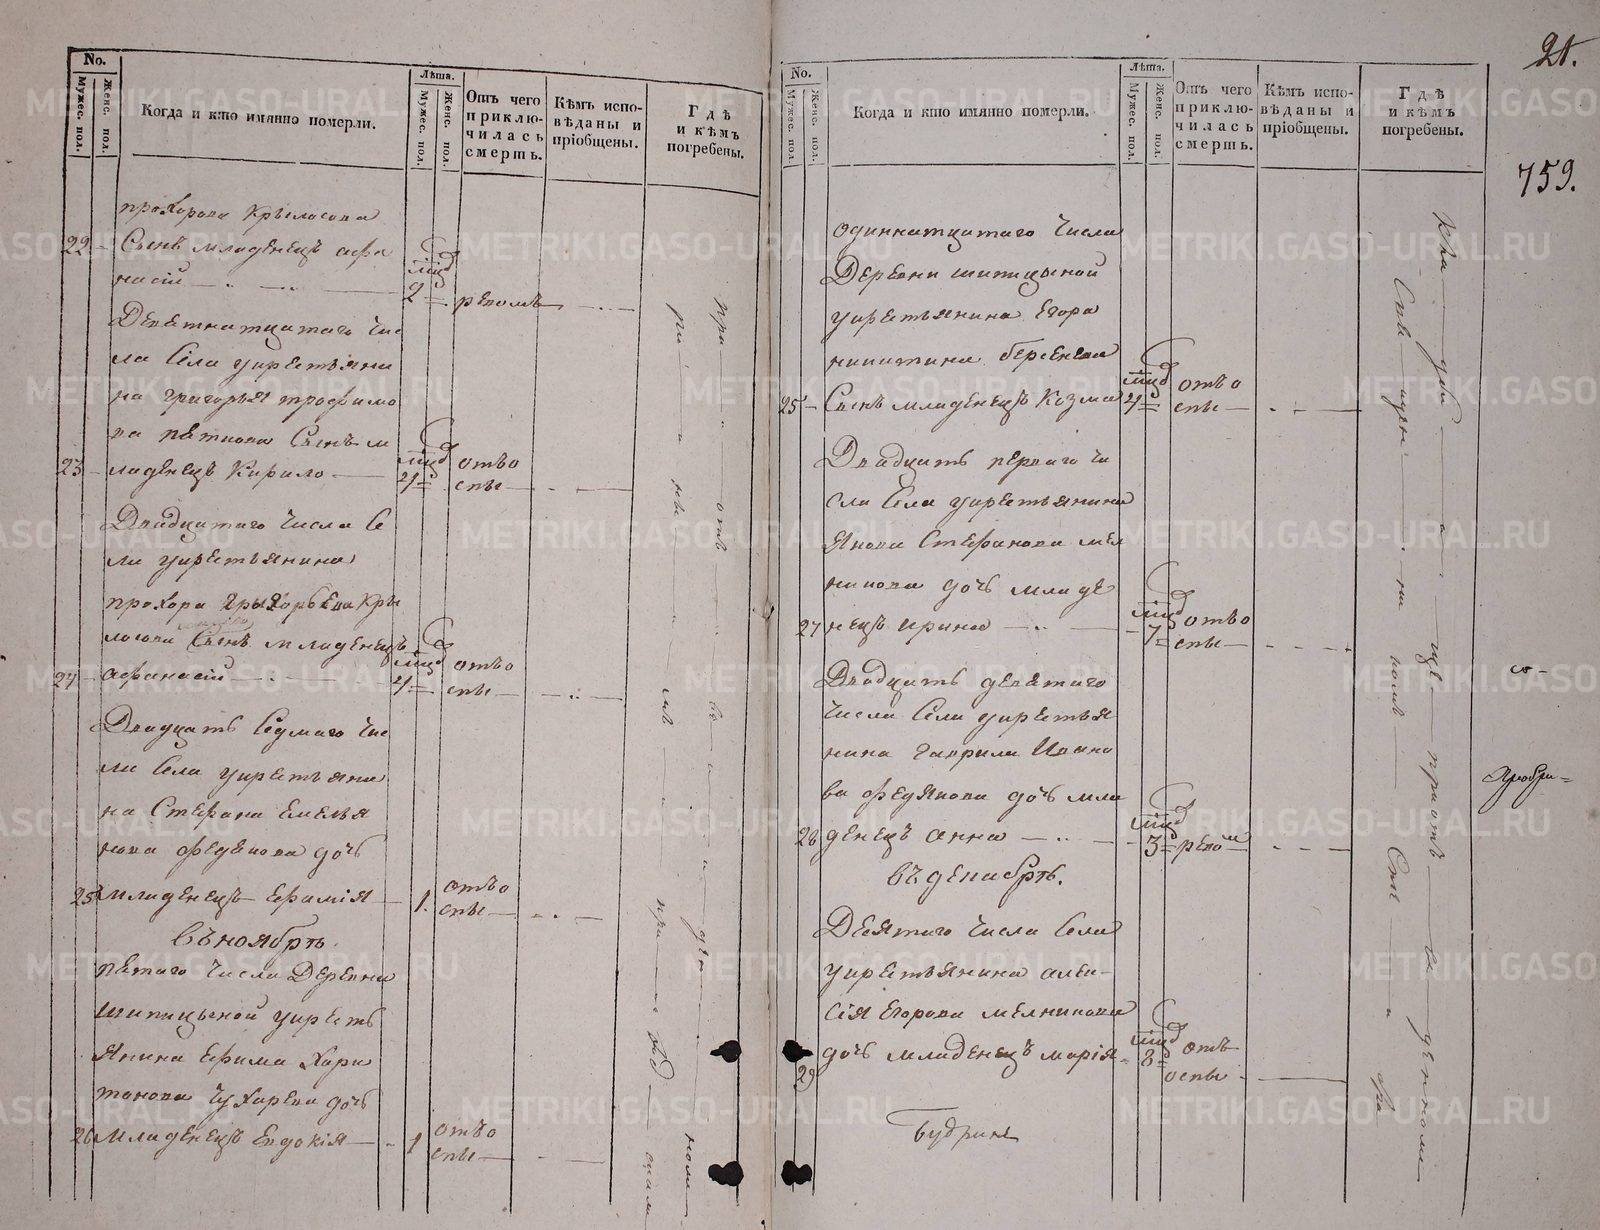 No.
Мужес. пол.
Женс. пол.
Когда и кто имянно померли.
Лѣта.
Мужес. пол.
Женс. пол.
Отъ чего приклю-
чилась
смерть.
Кѣмъ испо-
вѣданы и
пріобщены.
Гдѣ
и кѣмъ
погребены.
прохорова Крылосова
22 Сынъ младенецъ афа
насій 2 ревомъ
Деветнатцатаго чис
ла Села укрестьяни
на григорья трофимо
ва петкова Сынъ м
23 ладенецъ Кирило 4 отъ о
спы
Двадцатаго числа Се
ла укрестьянина
прохора Кры
лосова Сынъ младенецъ
24 афанасій 4 отъ о
спы
Двадцать Седмаго чис
ла Села укрестьяни
на Стефана Емелья
нова федекова дочь
25 младенецъ Ефимія 1. отъ о
спы
въ ноябрѣ
пѣтаго числа Деревни
шипицыной укресть
янина Ефима Хари
тонова Чухарева дочь
26 младенецъ Евдокія 1 отъ о
спы
21.
759.
No.
Мужес. пол.
Женс. пол.
Когда и кто имянно померли.
Лѣта.
Мужес. пол.
Женс. пол.
Отъ чего
приклю-
чилась
смерть.
Кѣмъ испо-
вѣданы и
пріобщены.
Гдѣ
и кѣмъ
погребены.
одиннатцатаго числа
Деревни шипицыной
укрестьянина Егора
никитина береснева
25 Сынъ младенецъ Козма 4 отъ о
спы
Двадцать перваго чи
сла Села укрестьянина
Якова Стефанова мел
никова дочь младе
27 нецъ ирина 7 отъ о
спы
Двадцать деветаго
числа Села укрестья
нина гаврила Ивано
ва федякова дочь мла
28 денецъ анна 3 ревом
въ декабрѣ.
Десятаго числа Села
укрестьянина алек
сія Егорова мелникова
29 дочь младенецъ марія 8 отъ
оспы
METRIKI.GASO-URAL.RU